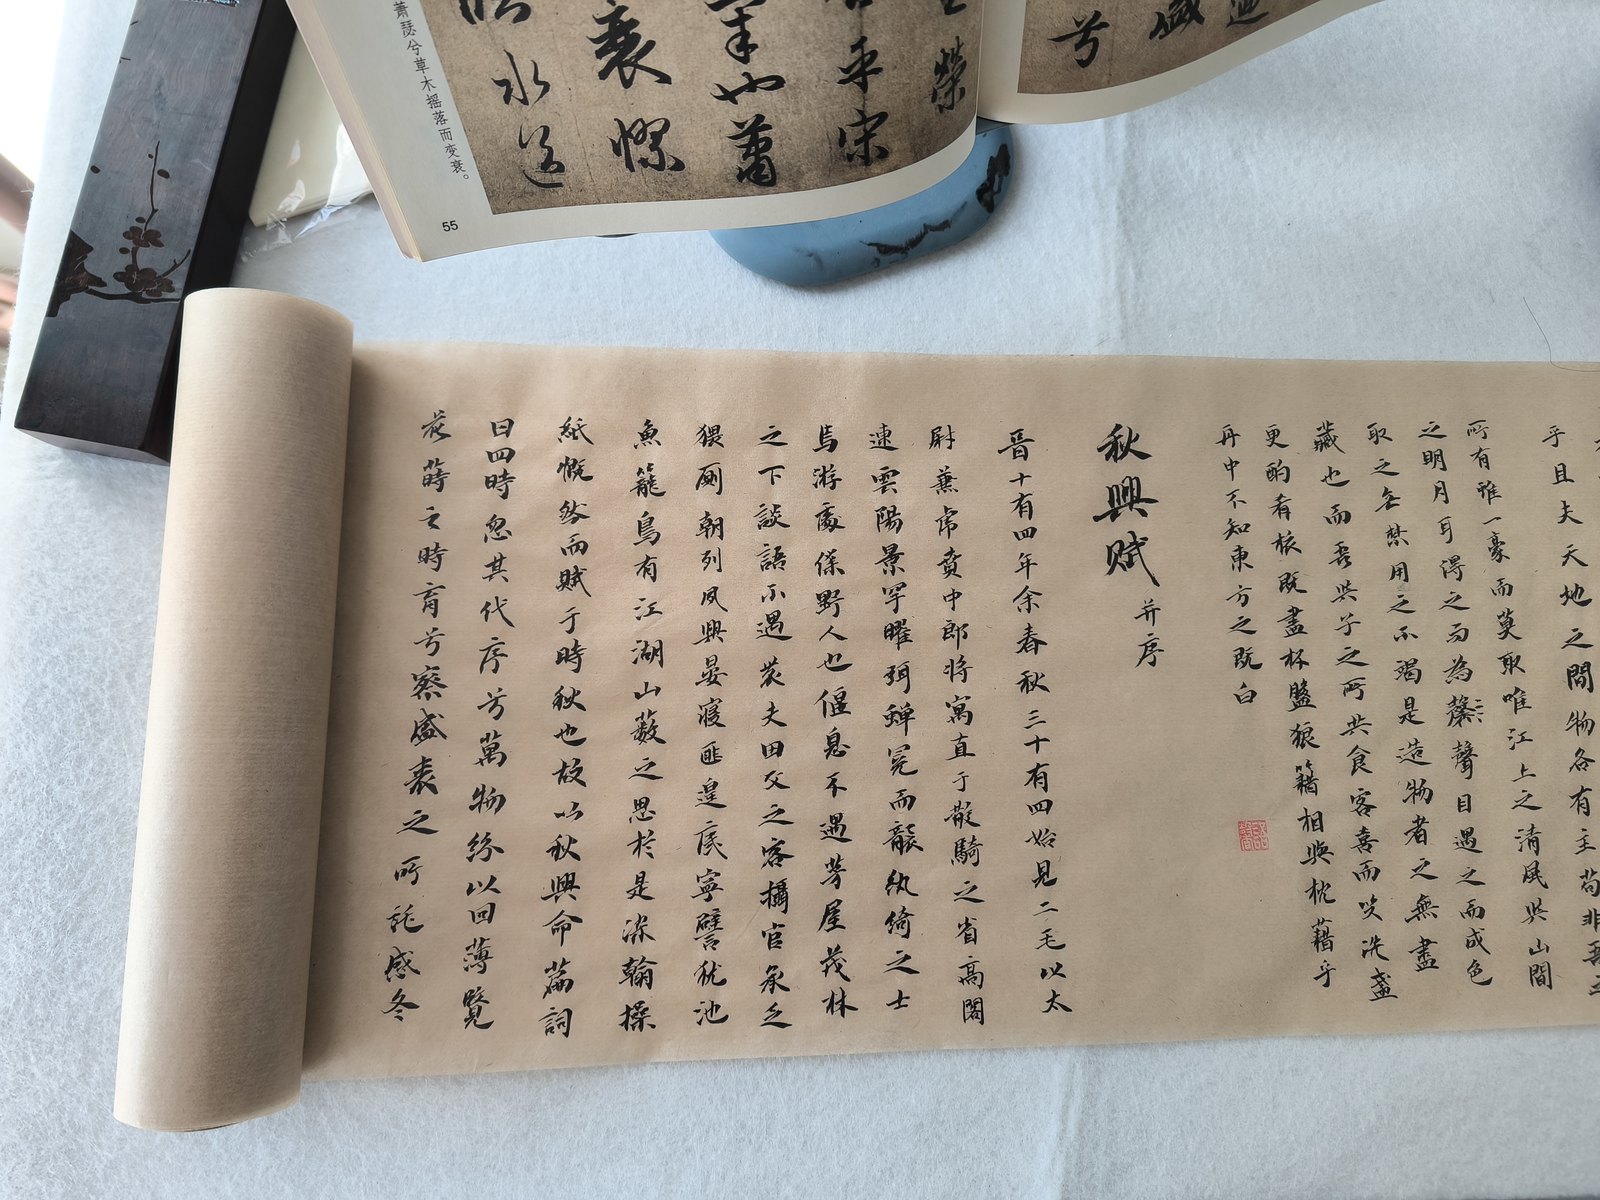 兮
榮
平宋
也蕭
衰憀
水送
萧瑟兮草木摇落而变衰。
55
乎且夫天地之間物各有主苟非吾之
所有雖一豪而莫取唯江上之清風與山間
之明月耳得之而為聲目遇之而成色
取之無禁用之不竭是造物者之無盡
藏也而吾與子之所共食客喜而笑洗盞
更酌肴核既盡杯盤狼籍相與枕藉乎
舟中不知東方之既白
秋興賦 并序
晉十有四年余春秋三十有四始見二毛以太
尉兼虎賁中郎將寓直于散騎之省高閣
連雲陽景罕曜珥蟬冕而襲紈綺之士
焉游處僕野人也偃息不過茅屋茂林
之下談語不過農夫田父之客攝官承乏
猥廁朝列夙興晏寢匪遑底寧譬猶池
魚籠鳥有江湖山藪之思於是染翰操
紙慨然而賦于時秋也故以秋興命篇詞
曰四時忽其代序兮萬物紛以回薄覽
花蒔之時育兮察盛衰之所託感冬